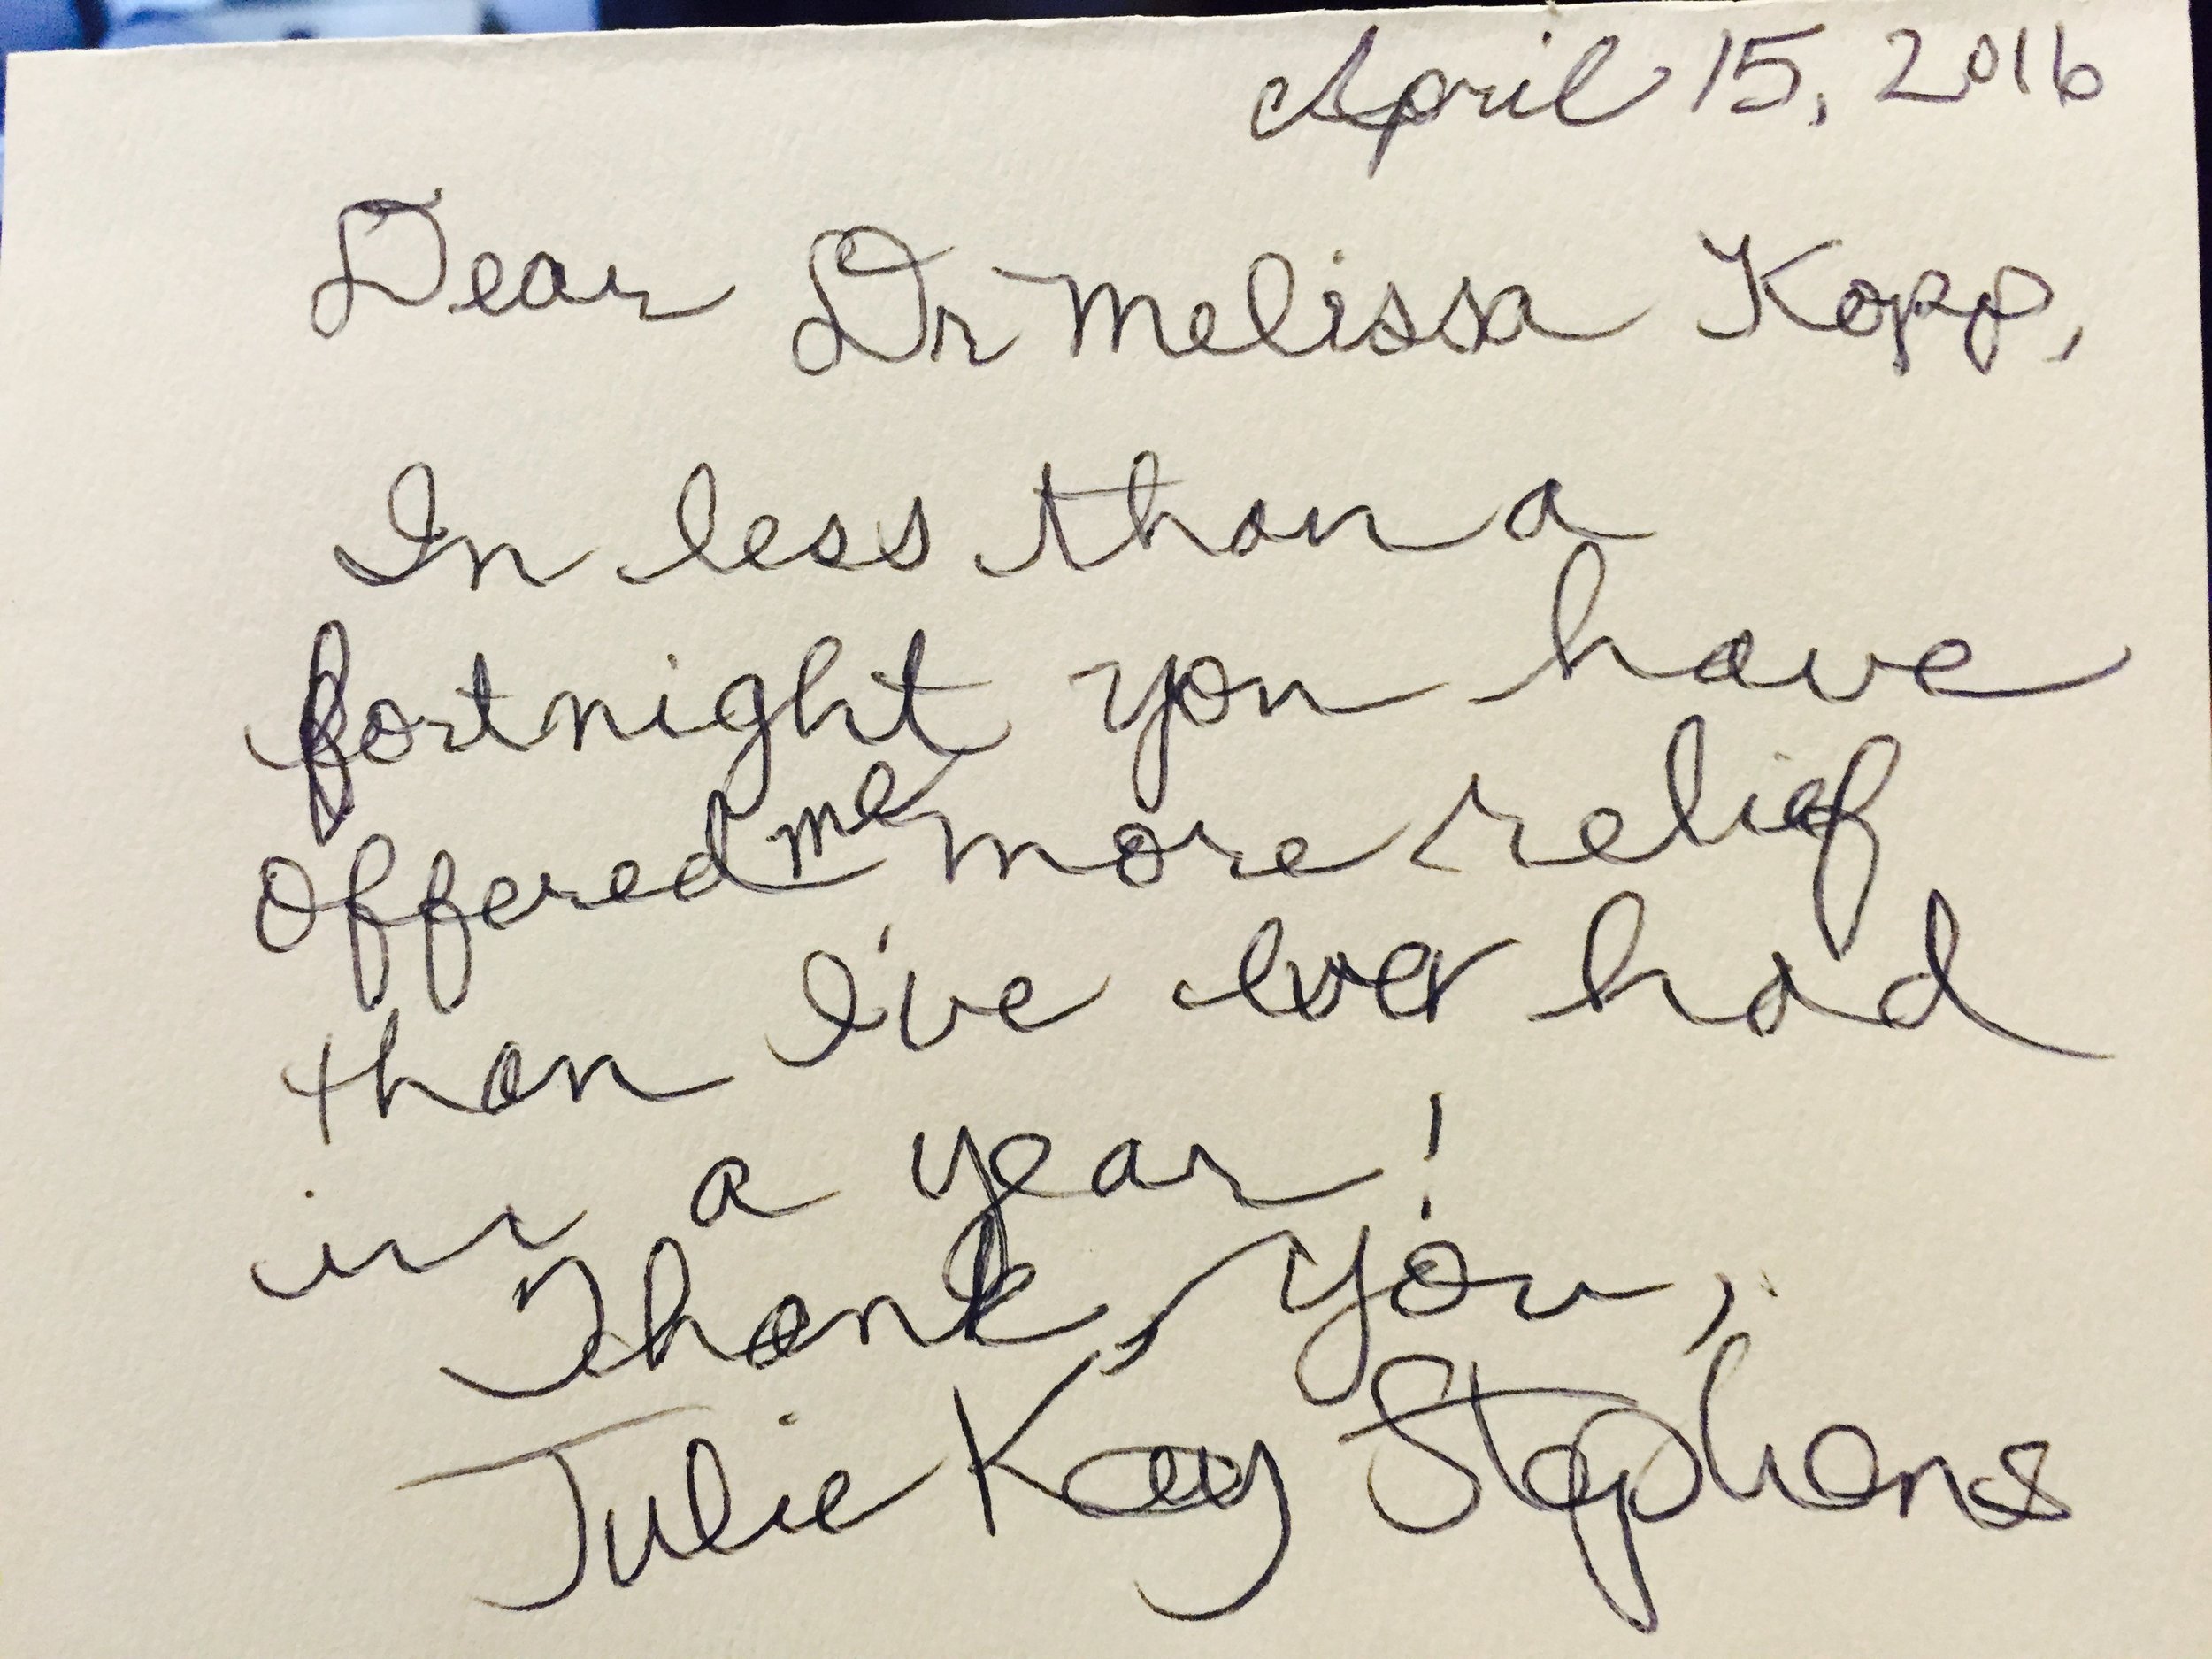 April 15, 2016
Dear Dr Melissa Kopp,
In less than a
fortnight you have
offered me more relief
than I've ever had
in a year!
Thank, you,
Julie Kay Stephens